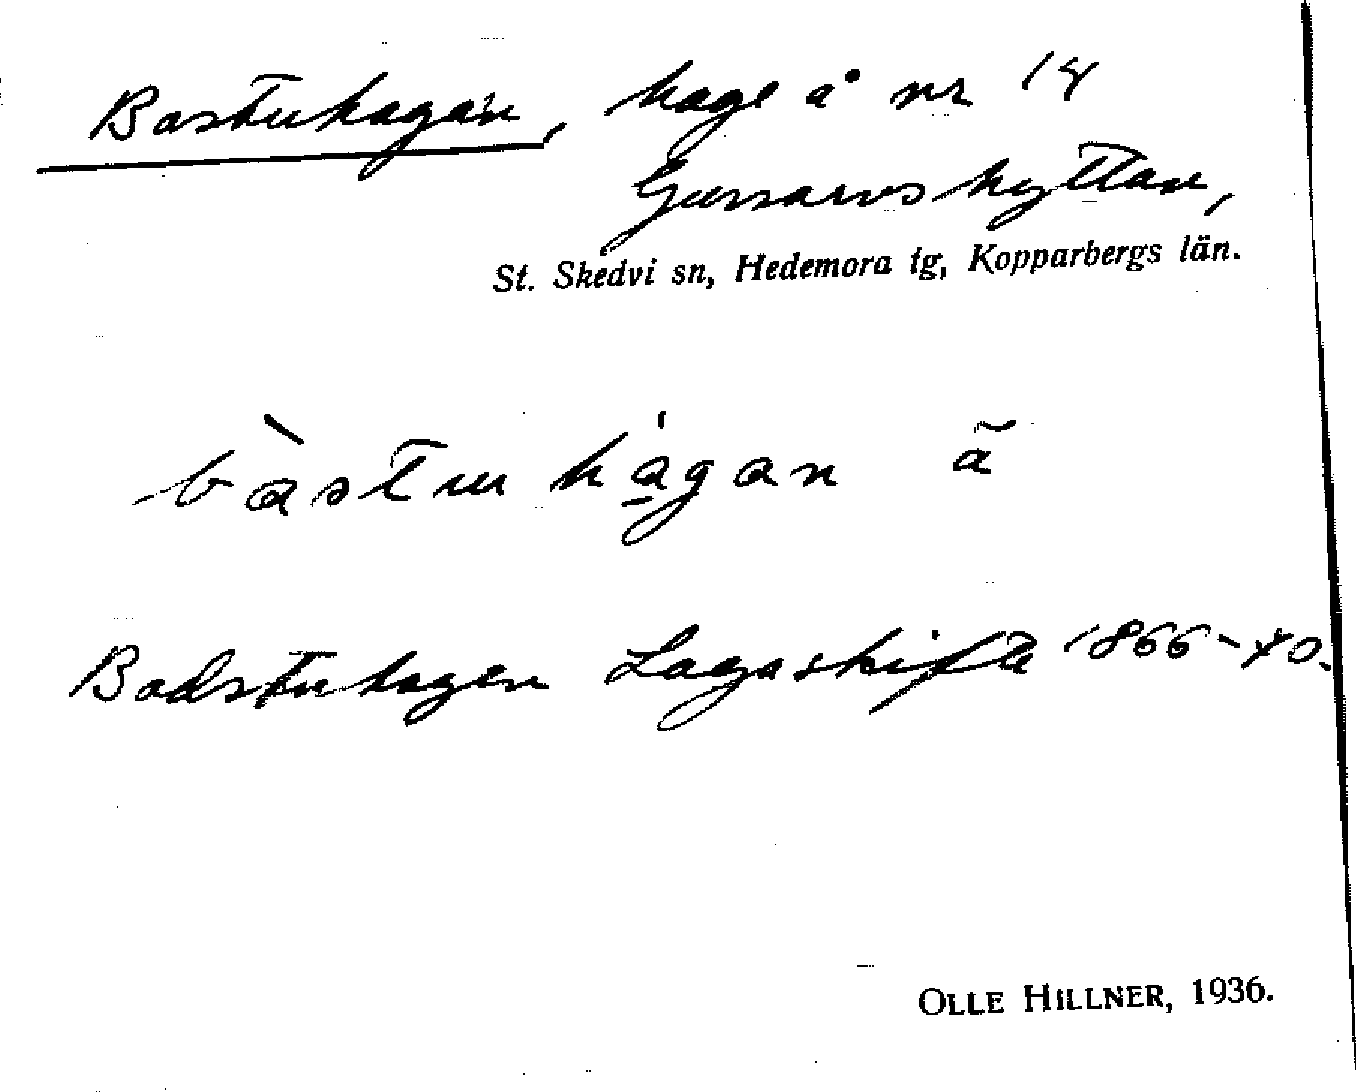 Bastuhagan, hage å nr 14
Gussarvshyttan,
St. Skedvi sn, Hedemora tg, Kopparbergs län.
bàstuhágan ã
Badstuhagen Lagaskifte 1866-70.
OLLE HILLNER, 1936.